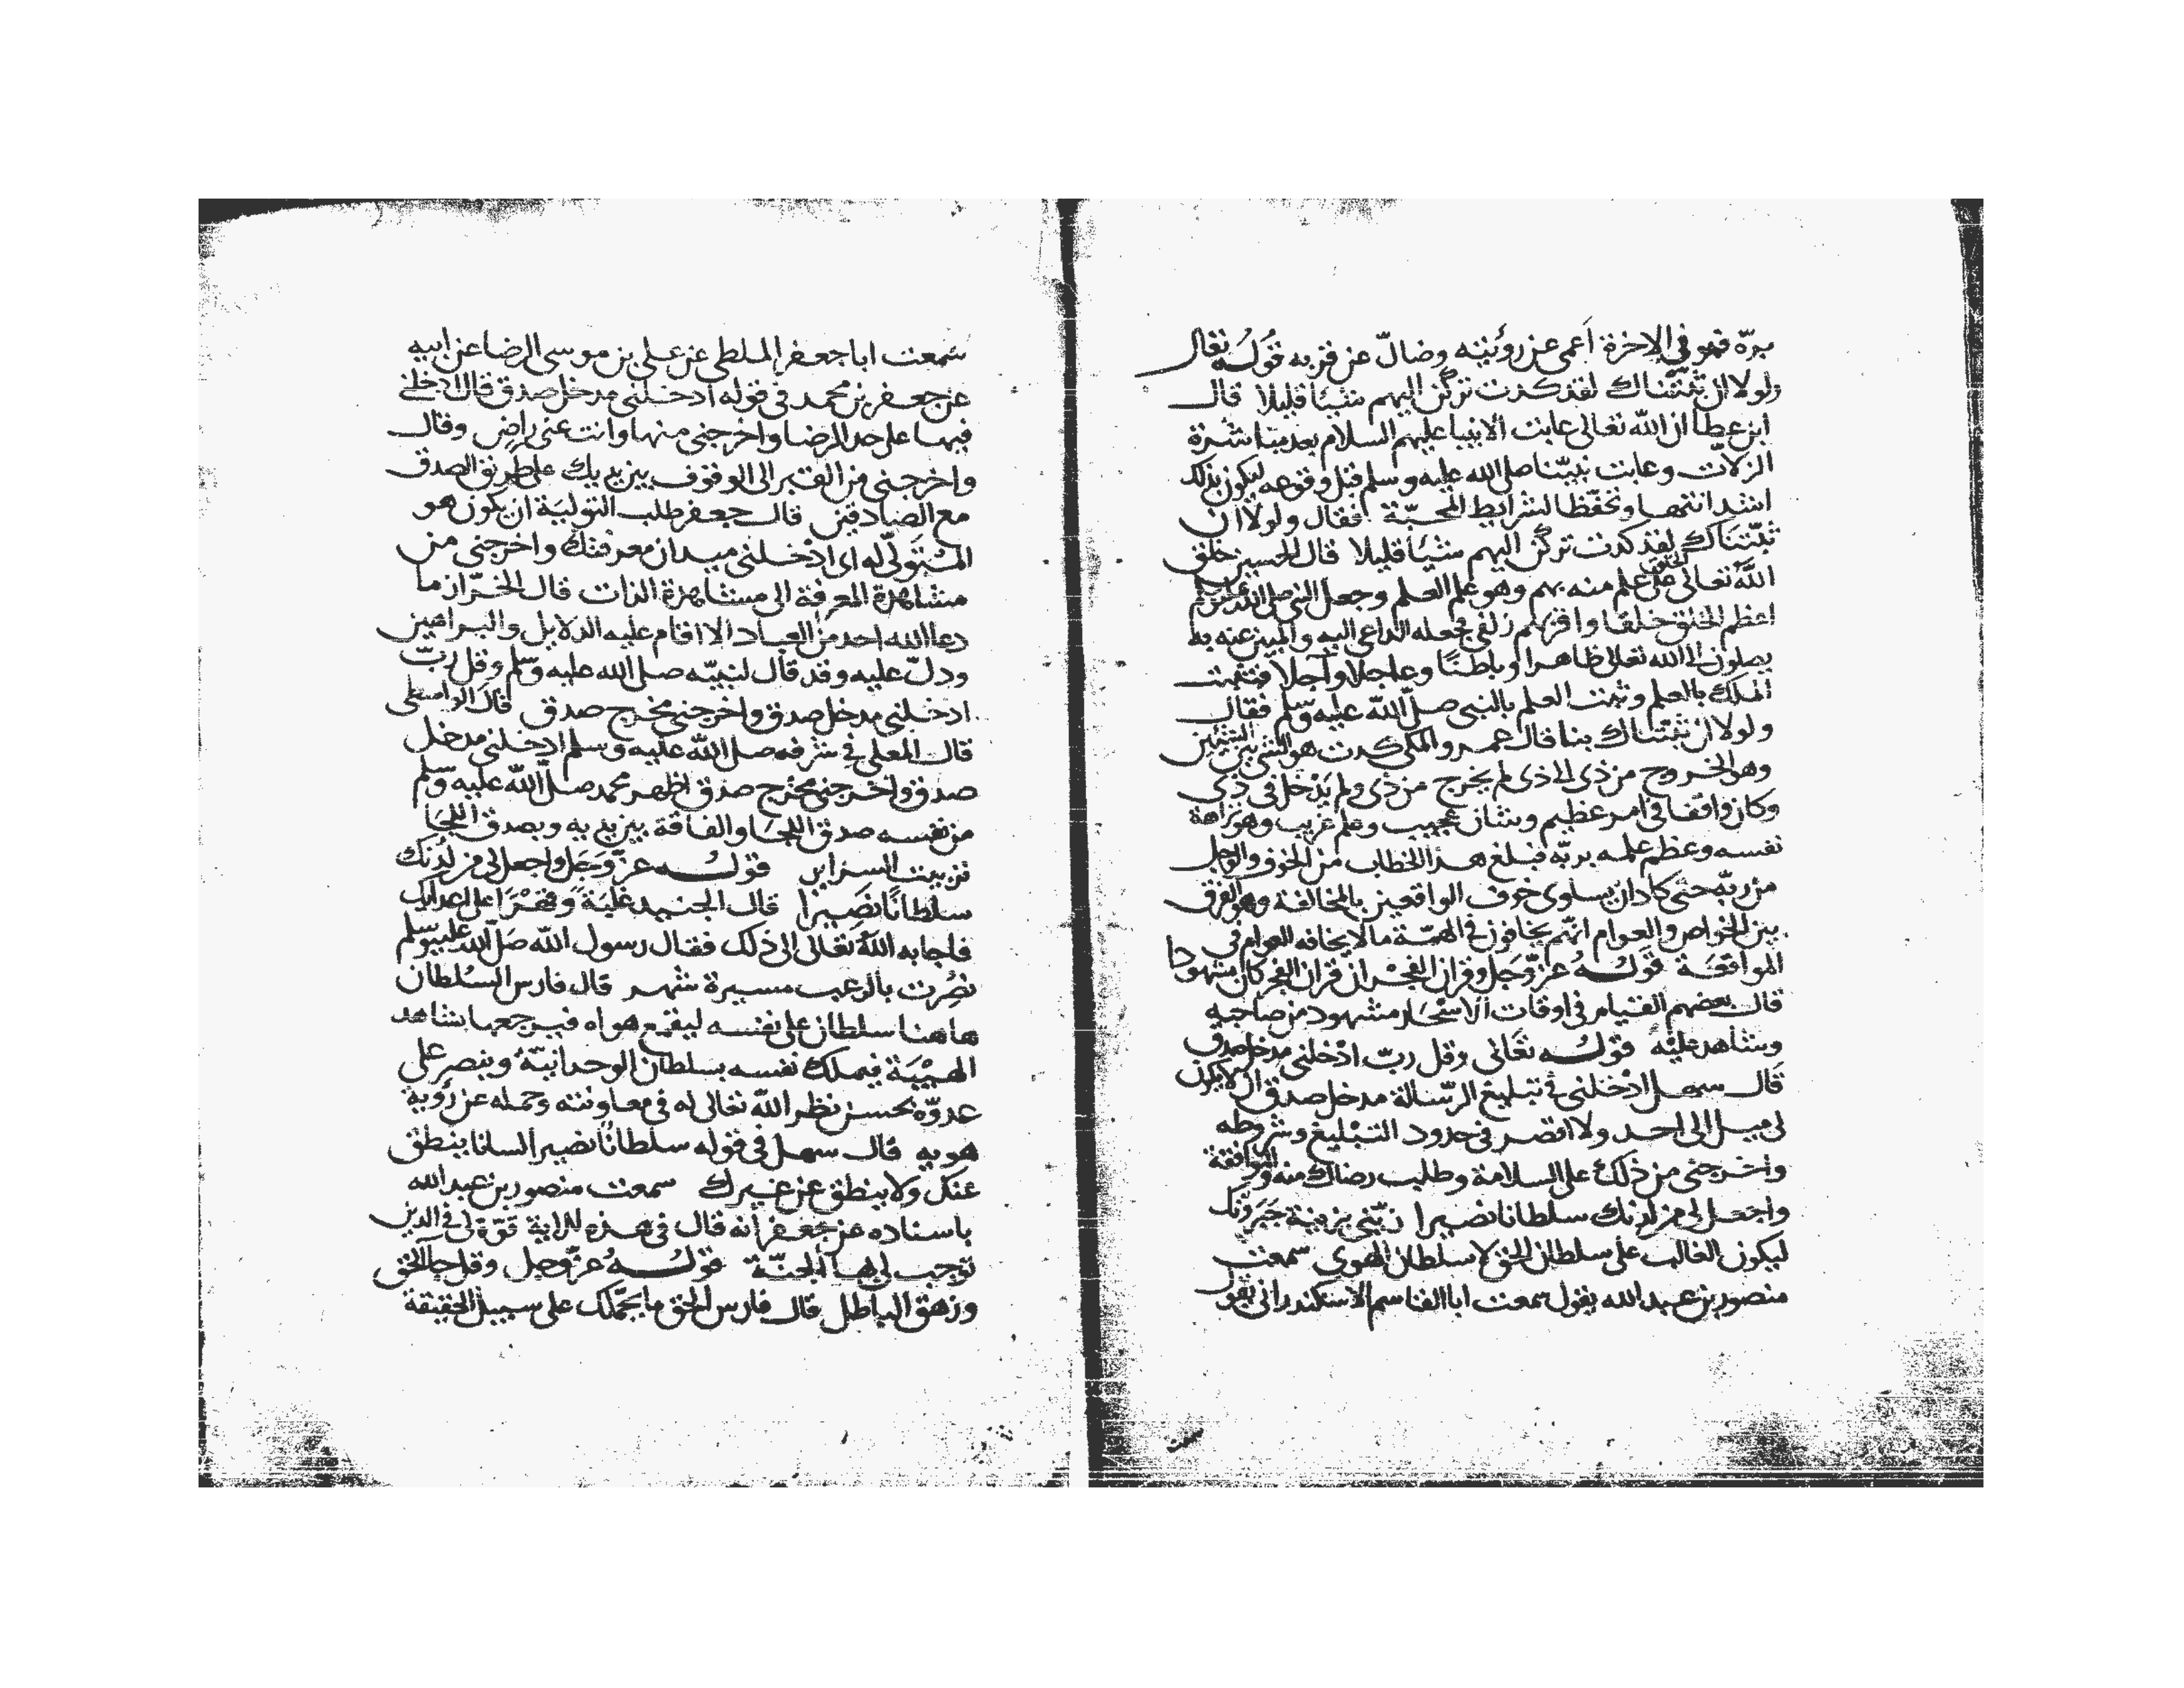 برّه فهو في الاخرة أعمى عن رؤيته وضالّ عن قربه قوله تعالى
ولولا ان ثبّتناك لقد كدت تركن اليهم شيئا قليلا قال
ابن عطا ان الله تعالى عاتب الانبيا عليهم السلام بعد مباشرة
الزلاّت وعاتب نبيّنا صلى الله عليه وسلم قبل وقوعه ليكون بذلك
اشد انتها وتحفّظا لشرايط المحبّة فقال ولولا ان
ثبّتناك لقد كدت تركن اليهم شيئا قليلا قال الحسين خلق
الله تعالى الخلق على علم منه بهم وهو علم العلم وجعل النبي صلى الله عليه وسلم
اعظم الخلق خلقا واقربهم زلفى فجعله الداعي اليه والمبين عنه به
يصلون الى الله تعالى ظاهرا وباطنًا وعاجلا وآجلا فتثبت
الملك بالعلم وتثبت العلم بالنبي صلّى الله عليه وسلم فقال
ولولا ان ثبّتناك بنا قال عمرو المكي كدت هو الشي بين الشيئين
وهو الخروج من ذى الا ذى لم يخرج من ذى ولم يَدْخل في ذى
وكان واقفا في امر عظيم وشان عجيب وعلم غريب وهو نزاهة
نفسه وعظم علمه بربّه فبلغ هذا الخطاب من الخوف والوجل
من ربّه حتى كاد ان يساوى خوف الواقعين بالمخالفة وهو الفرق
بين الخواص والعوام انّهم يخافون في الهمّة ما لا يخافه العوام في
المواقعة قوله عزّ وجل وقران الفجر ان قران الفجر كان مشهودا
قال بعضهم القيام في اوقات الاسْحَار مشهود من صاحبه
وشاهد عليه قوله تعَالى وقل ربّ ادْخلني مدخل صدق
قال سهل ادْخلني في تبليغ الرّسالة مدخل صدق ان لا يكون
لي ميل الى احد ولا اقصر في حدود التبْليغ وشروطه
واخرجني من ذلك على السلامة وطلب رضاك منه والموافقة
واجعل لي من لدنك سلطانا نصيرا زيّني بزينة جَبَروتك
ليكون الغالب على سلطان الحق لا سلطان الهوى سمعت
منصور بن عبد الله يقول سمعت ابا القاسم الاسكندراني يقول
سمعت
سَمعت ابا جعفر الملطي عن علي بن موسى الرضا عن ابيه
عن جعفر بن محمد في قوله ادخلني مدخل صدق قال ادخلني
فيها على حد الرضا واخرجني منها وانت عني راضٍ وقال
واخرجني من القبر الى الوقوف بين يديك على طريق الصدق
مع الصادقين قال جعفر طلب التوليَة ان يكون هو
المُتَولّي له اى ادْخلني ميدان معرفتك واخرجني من
مشاهدة المعرفة الى مشاهدة الذات قال الخرّاز ما
دعا الله احد من العباد الا اقام عليه الدلايل والبراهين
ودلّ عليه وقد قال لنبيّه صلى الله عليه وسلم وقل ربّ
ادخلني مدخل صدق واخرجني مخرج صدق قال الواسطي
قال المعلى في شرفه صلى الله عليه وسلم ادخلني مدخل
صدق واخرجني مخرج صدق اظهر محمد صلّى الله عليه وسلم
من نفسه صدق اللجَا والفاقة بين يديه وبصدق اللجَا
تزيينت السراير قوله عزّ وَجَل واجعل لي من لدنك
سلطانًا نصَيرا قال الجنيد غلبَة وَقهْرًا على اعدايك
فاجابه الله تعالى الى ذلك فقال رسول الله صَلّى الله عليه وسلم
نصُرت بالرعب مسيرة شهر قال فارس السُلطان
هاهنا سلطان على نفسه ليقمع هواه فيرجعها بشاهد
الهيْبَة فيملك نفسه بسلطان الوحدانيّة وينصر على
عدوّه بحسن نظر الله تعالى له في معاونته وحمله عن رؤية
هو به قال سهل في قوله سلطانًا نصيرا لسانا ينطق
عنك ولا ينطق عن غيرك سمعت منصور بن عبد الله
باسناده عن جعفر أنه قال في هذه الاية قوّة لي في الدين
توجب لي بها الجنّة قوله عزّ وجل وقل جا الحق
وزهق الباطل قال فارس الحق ما يحملك على سبيل الحقيقة